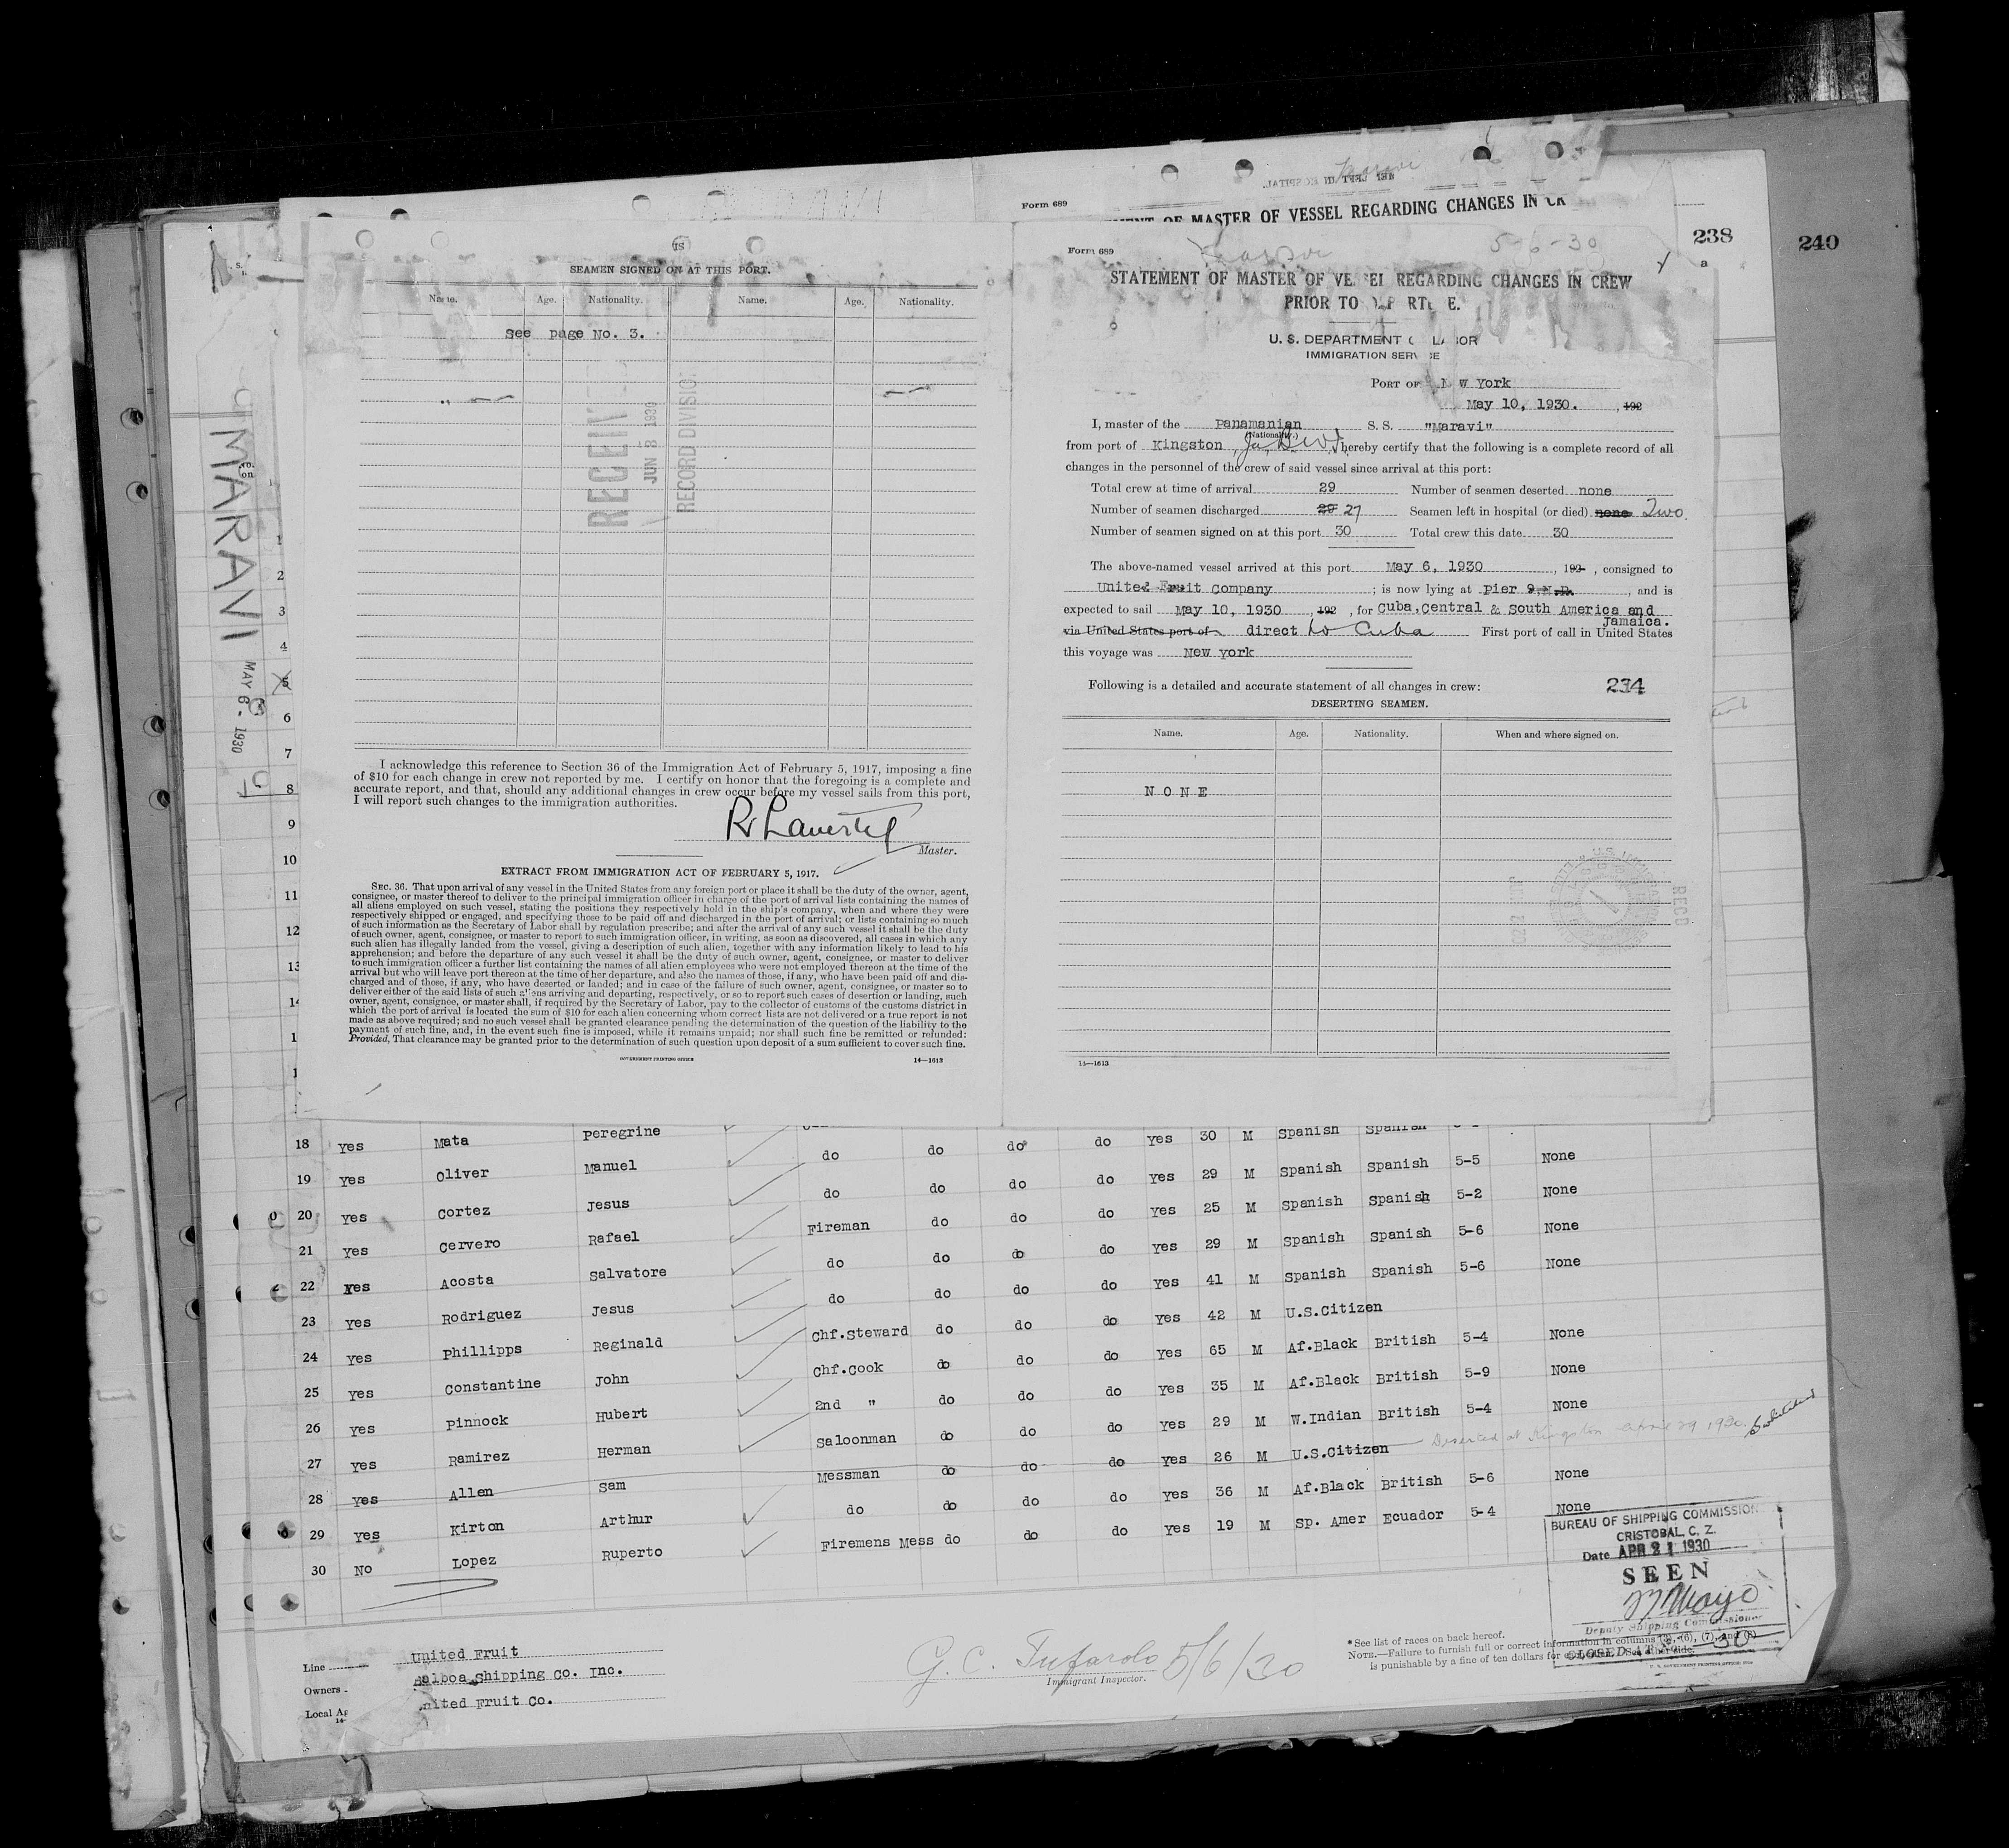 Form 689
MENT OF MASTER OF VESSEL REGARDING CHANGES IN CR
238
240
SEAMEN SIGNED ON AT THIS PORT.
Name. Age. Nationality. Name. Age. Nationality.
See page No. 3.
RECEIVED
JUN 3 1930
RECORD DIVISION
I acknowledge this reference to Section 36 of the Immigration Act of February 5, 1917, imposing a fine
of $10 for each change in crew not reported by me. I certify on honor that the foregoing is a complete and
accurate report, and that, should any additional changes in crew occur before my vessel sails from this port,
I will report such changes to the immigration authorities.
Master.
EXTRACT FROM IMMIGRATION ACT OF FEBRUARY 5, 1917.
SEC. 36. That upon arrival of any vessel in the United States from any foreign port or place it shall be the duty of the owner, agent,
consignee, or master thereof to deliver to the principal immigration officer in charge of the port of arrival lists containing the names of
all aliens employed on such vessel, stating the positions they respectively hold in the ship's company, when and where they were
respectively shipped or engaged, and specifying those to be paid off and discharged in the port of arrival; or lists containing so much
of such information as the Secretary of Labor shall by regulation prescribe; and after the arrival of any such vessel it shall be the duty
of such owner, agent, consignee, or master to report to such immigration officer, in writing, as soon as discovered, all cases in which any
such alien has illegally landed from the vessel, giving a description of such alien, together with any information likely to lead to his
apprehension; and before the departure of any such vessel it shall be the duty of such owner, agent, consignee, or master to deliver
to such immigration officer a further list containing the names of all alien employees who were not employed thereon at the time of the
arrival but who will leave port thereon at the time of her departure, and also the names of those, if any, who have been paid off and dis-
charged and of those, if any, who have deserted or landed; and in case of the failure of such owner, agent, consignee, or master so to
deliver either of the said lists of such aliens arriving and departing, respectively, or so to report such cases of desertion or landing, such
owner, agent, consignee, or master shall, if required by the Secretary of Labor, pay to the collector of customs of the customs district in
which the port of arrival is located the sum of $10 for each alien concerning whom correct lists are not delivered or a true report is not
made as above required; and no such vessel shall be granted clearance pending the determination of the question of the liability to the
payment of such fine, and, in the event such fine is imposed, while it remains unpaid; nor shall such fine be remitted or refunded:
Provided, That clearance may be granted prior to the determination of such question upon deposit of a sum sufficient to cover such fine.
GOVERNMENT PRINTING OFFICE 14—1613
Form 689
5-6-30
STATEMENT OF MASTER OF VESSEL REGARDING CHANGES IN CREW
PRIOR TO DEPARTURE.
U. S. DEPARTMENT OF LABOR
IMMIGRATION SERVICE
PORT OF New York
May 10, 1930. , 192
I, master of the Panamanian S. S. "Maravi"
(Nationality.)
from port of Kingston, Ja BWI, hereby certify that the following is a complete record of all
changes in the personnel of the crew of said vessel since arrival at this port:
Total crew at time of arrival 29 Number of seamen deserted none
Number of seamen discharged 29 27 Seamen left in hospital (or died) none Two
Number of seamen signed on at this port 30 Total crew this date 30
The above-named vessel arrived at this port May 6, 1930 , 192 , consigned to
United Fruit Company ; is now lying at Pier 9.N.R. , and is
expected to sail May 10, 1930 , 192 , for Cuba, Central & South America and
Jamaica.
via United States port of direct to Cuba First port of call in United States
this voyage was New York
Following is a detailed and accurate statement of all changes in crew: 234
DESERTING SEAMEN.
Name. Age. Nationality. When and where signed on.
NONE
14—1613
MARAVI
MAY 6 - 1930
1
2
3
4
5
6
7
8
9
10
11
12
13
18 Yes Mata Peregrine do do do Yes 30 M Spanish Spanish
19 Yes Oliver Manuel do do do do Yes 29 M Spanish Spanish 5-5 None
20 Yes Cortez Jesus do do do do Yes 25 M Spanish Spanish 5-2 None
21 Yes Cervero Rafael Fireman do do do Yes 29 M Spanish Spanish 5-6 None
22 Yes Acosta Salvatore do do do do Yes 41 M Spanish Spanish 5-6 None
23 Yes Rodriguez Jesus do do do do Yes 42 M U.S.Citizen
24 Yes Phillipps Reginald Chf.Steward do do do Yes 65 M Af.Black British 5-4 None
25 Yes Constantine John Chf.Cook do do do Yes 35 M Af.Black British 5-9 None
26 Yes Pinnock Hubert 2nd " do do do Yes 29 M W.Indian British 5-4 None
27 Yes Ramirez Herman Saloonman do do do Yes 26 M U.S.Citizen Deserted at Kingston April 29 1930.
28 Yes Allen Sam Messman do do do Yes 36 M Af.Black British 5-6 None
29 Yes Kirton Arthur do do do do Yes 19 M Sp. Amer Ecuador 5-4 None
30 No Lopez Ruperto Firemens Mess do do
BUREAU OF SHIPPING COMMISSION
CRISTOBAL, C. Z.
Date APR 21 1930
SEEN
Deputy Shipping Commissioner
Line United Fruit
Owners Balboa Shipping Co. Inc.
Local Ag United Fruit Co.
G. C. Tufarolo 5/6/30
Immigrant Inspector.
*See list of races on back hereof.
NOTE.—Failure to furnish full or correct information in columns (3), (6), (7), and (8)
is punishable by a fine of ten dollars for each